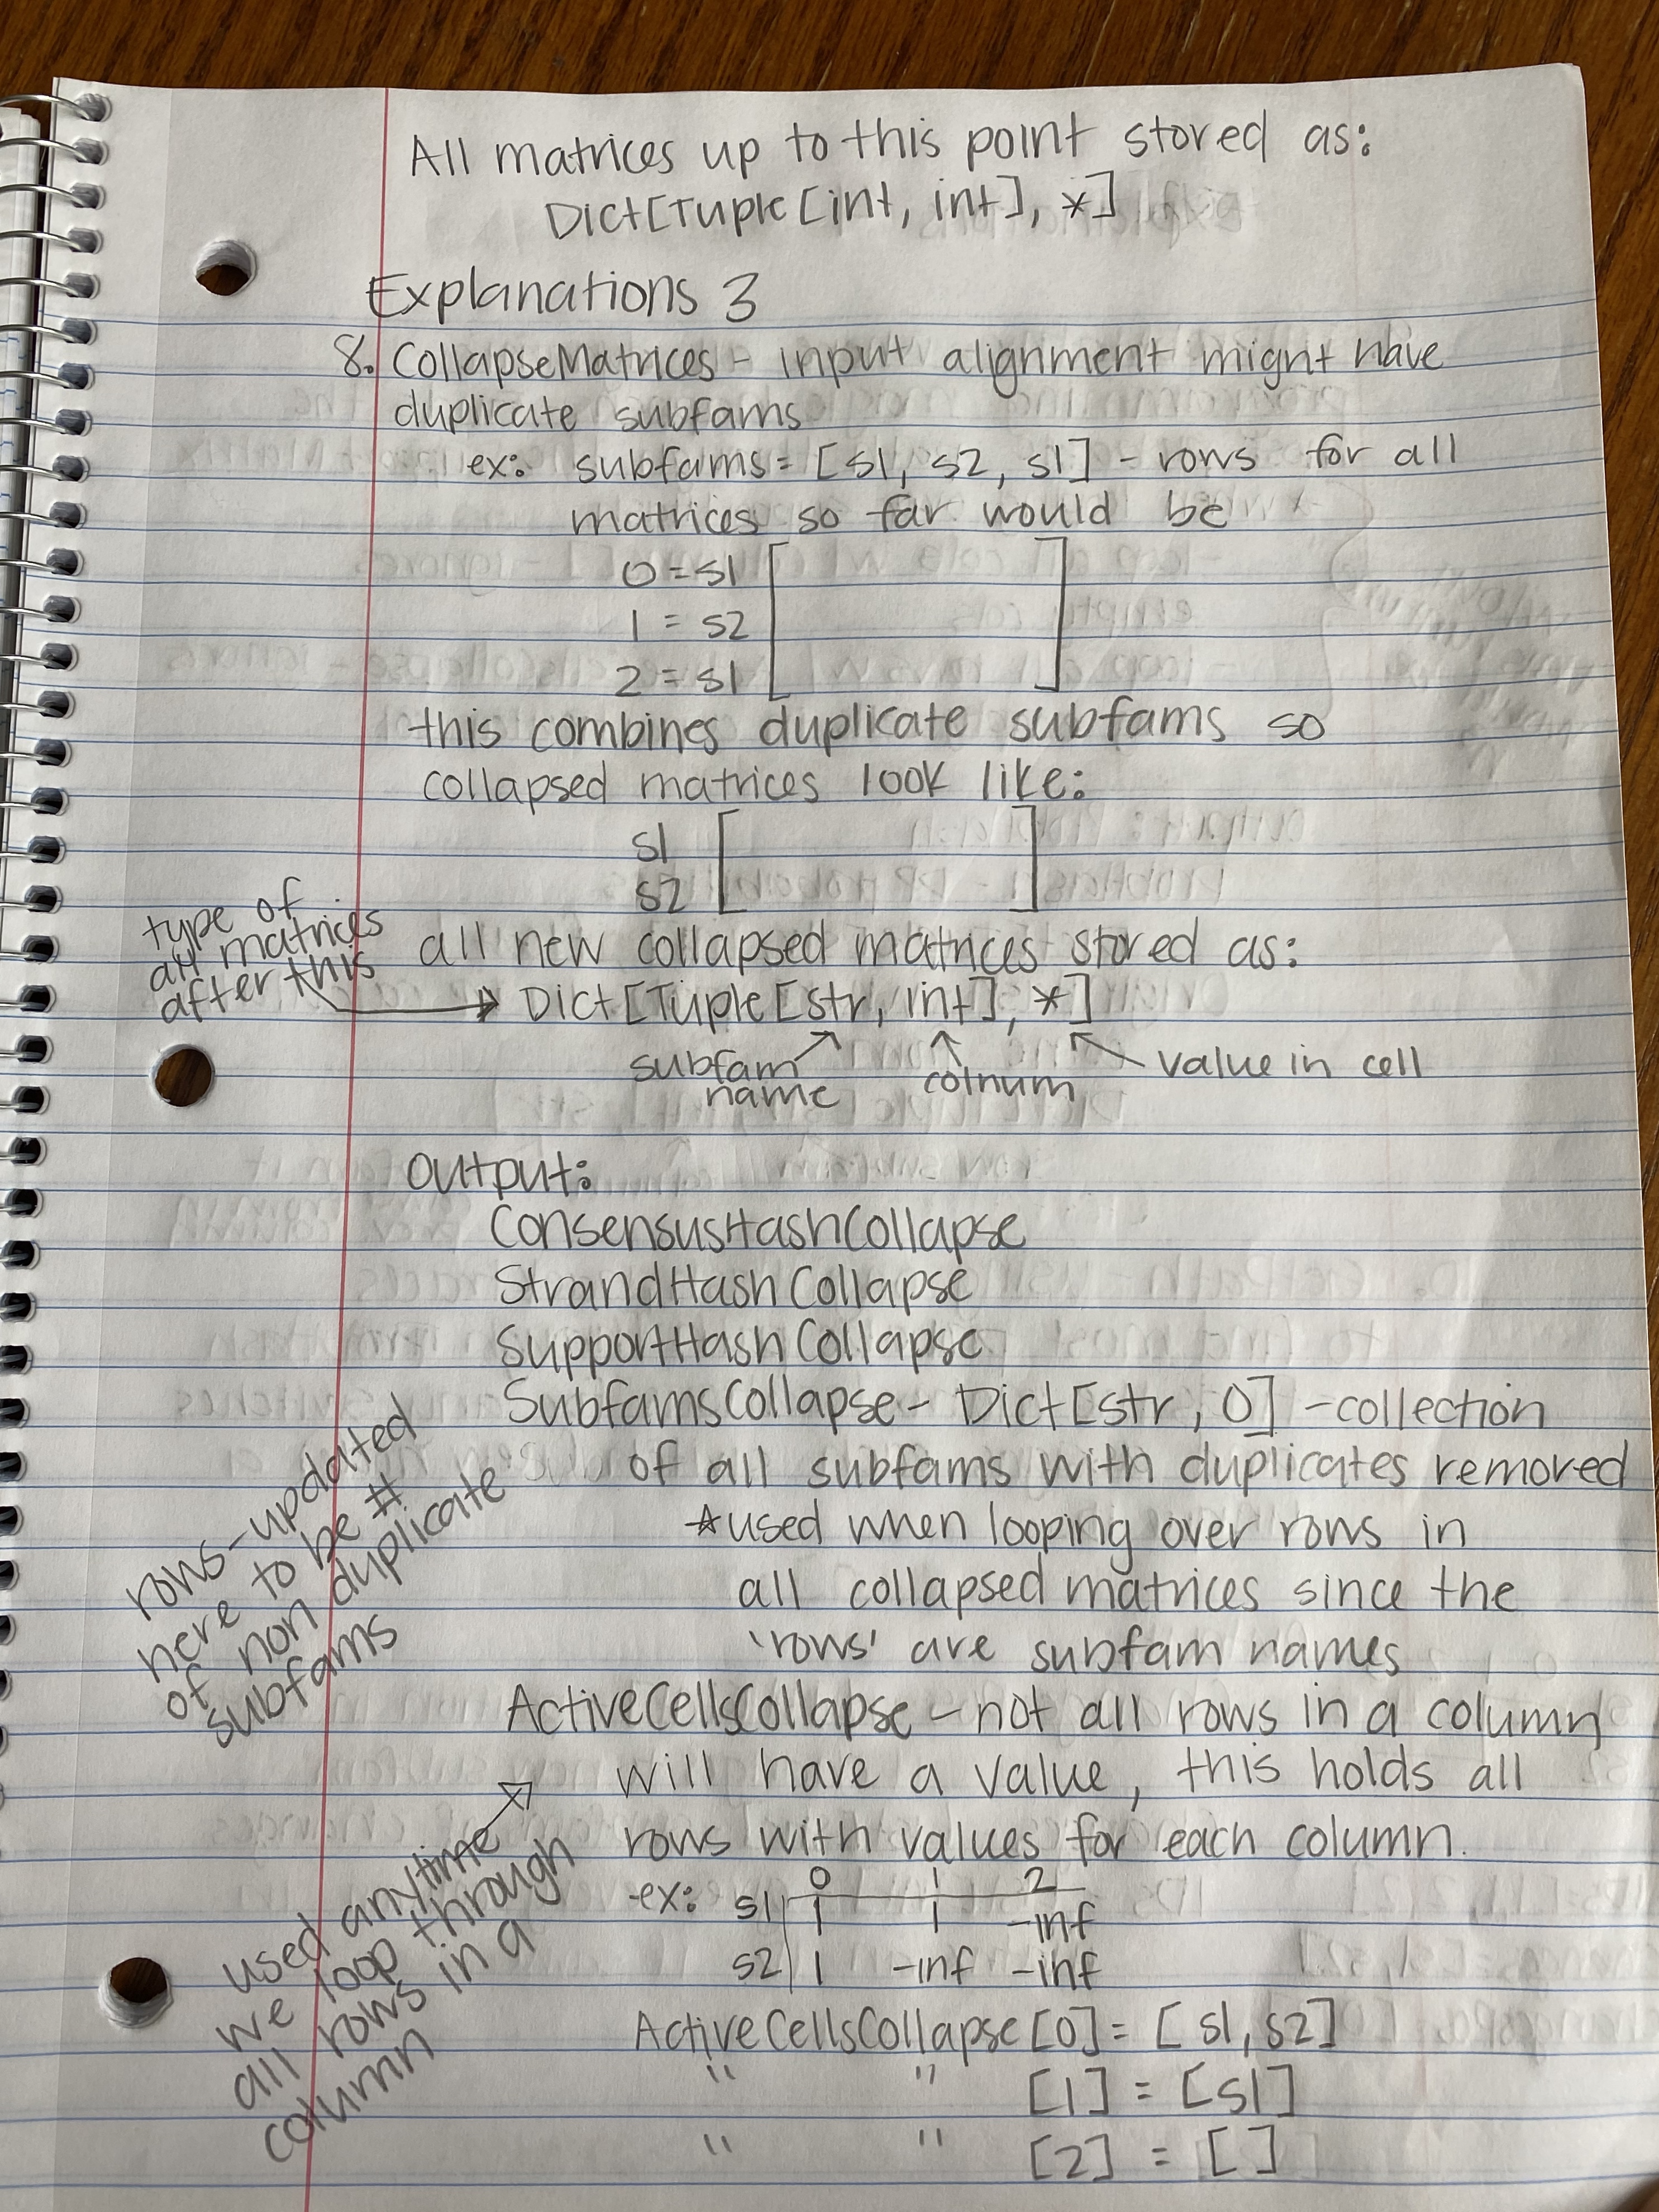 All matrices up to this point stored as:
Dict[Tuple[int, int], *]
Explanations 3
8. CollapseMatrices - input alignment might have
duplicate subfams
ex: subfams = [s1, s2, s1] - rows for all
matrices so far would be
0 = s1
1 = s2
2 = s1
this combines duplicate subfams so
collapsed matrices look like:
s1
s2
type of
all matrices
after this
all new collapsed matrices stored as:
Dict[Tuple[str, int], *]
subfam
name
colnum
value in cell
Output:
ConsensusHashCollapse
StrandHashCollapse
SupportHashCollapse
SubfamsCollapse - Dict[str, 0] - collection
of all subfams with duplicates removed
*used when looping over rows in
all collapsed matrices since the
'rows' are subfam names
rows - updated
here to be #
of non duplicate
subfams
ActiveCellsCollapse - not all rows in a column
will have a value, this holds all
rows with values for each column.
used anytime
we loop through
all rows in a
column
ex: 0 1 2
s1 1 1 -inf
s2 1 -inf -inf
ActiveCellsCollapse[0] = [s1, s2]
" " [1] = [s1]
" " [2] = [ ]